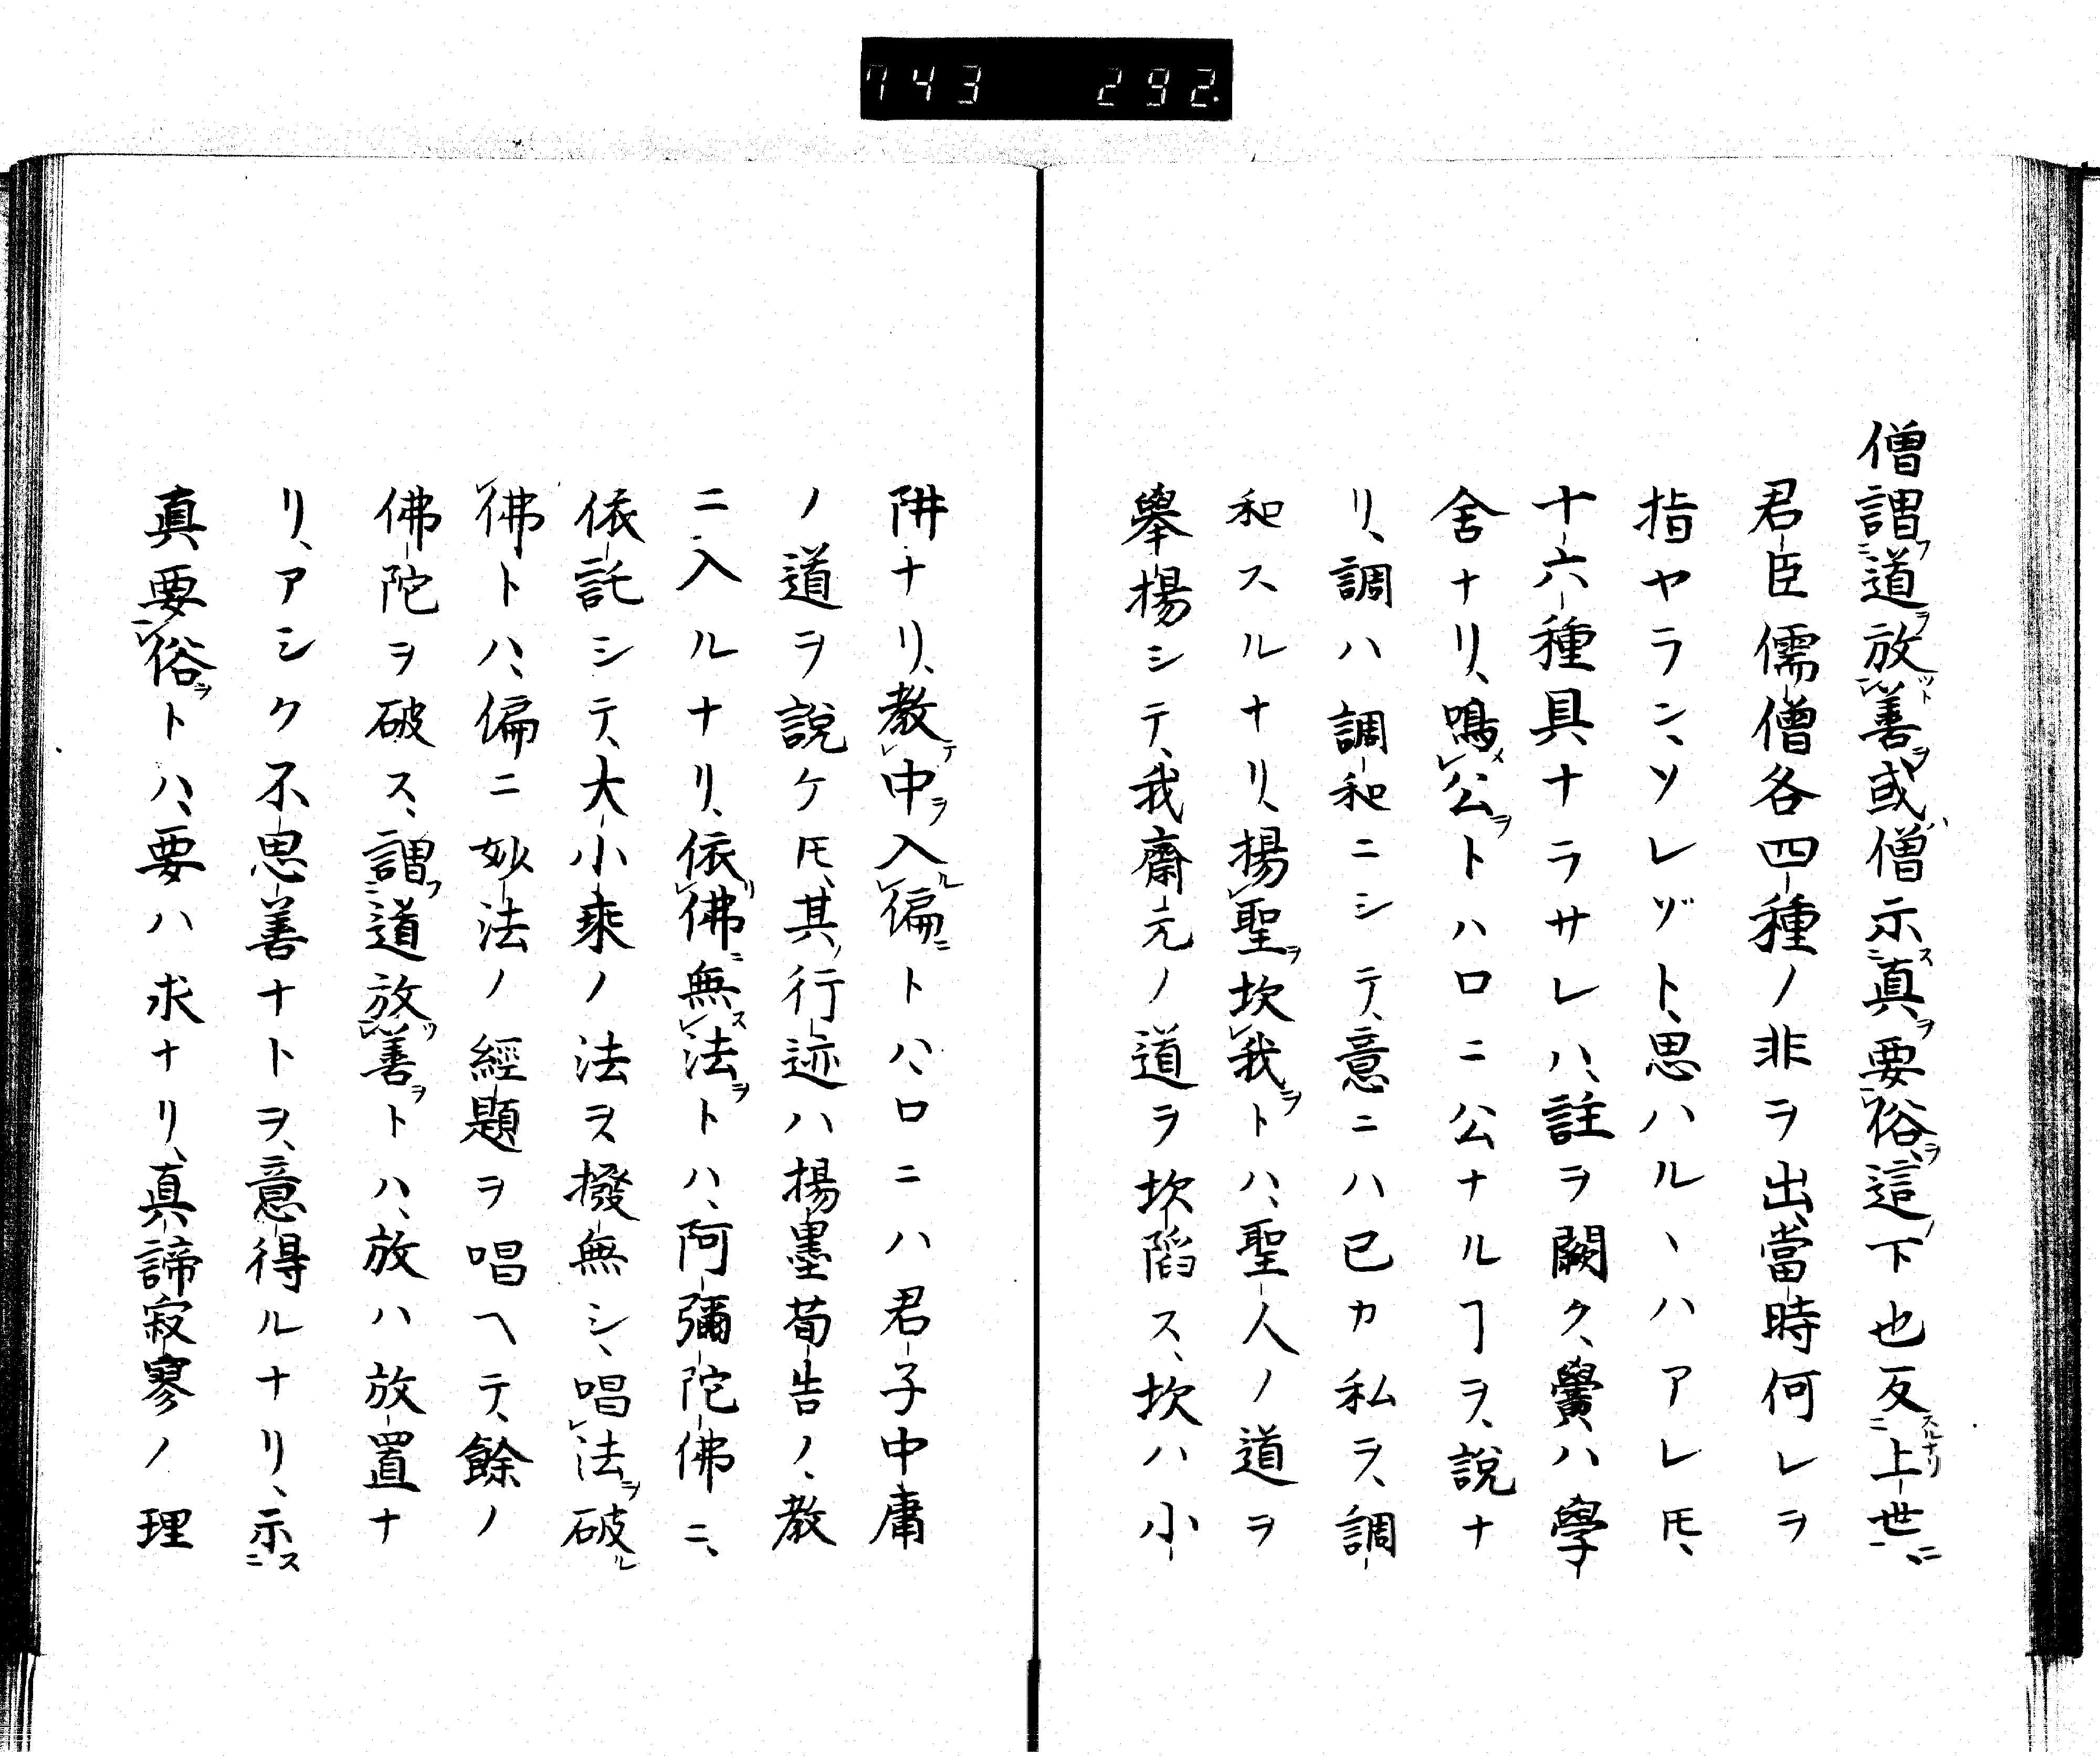 743 292.
僧謂道放善或僧示真要俗這下也反上世
君臣儒僧各四種ノ非ヲ出當時何レヲ
指ヤランソレゾト思ハルヽハアレ𪜈
十六種具ナラサレハ註ヲ闕ク黌ハ學
舍ナリ鳴公トハ口ニ公ナルヿヲ説ナ
リ調ハ調和ニシテ意ニハ己カ私ヲ調
和スルナリ揚聖坎我トハ聖人ノ道ヲ
擧揚シテ我齋元ノ道ヲ坎陷ス坎ハ小
阱ナリ教中入偏トハ口ニハ君子中庸
ノ道ヲ說ケ𪜈其行迹ハ揚墨荀告ノ教
ニ入ルナリ依佛無法トハ阿彌陀佛ニ
依託シテ大小乘ノ法ヲ撥無シ唱法破
佛トハ偏ニ妙法ノ經題ヲ唱ヘテ餘ノ
佛陀ヲ破ス謂道放善トハ放ハ放置ナ
リアシク不思善ナトヲ意得ルナリ示
真要俗トハ要ハ求ナリ真諦寂寥ノ理